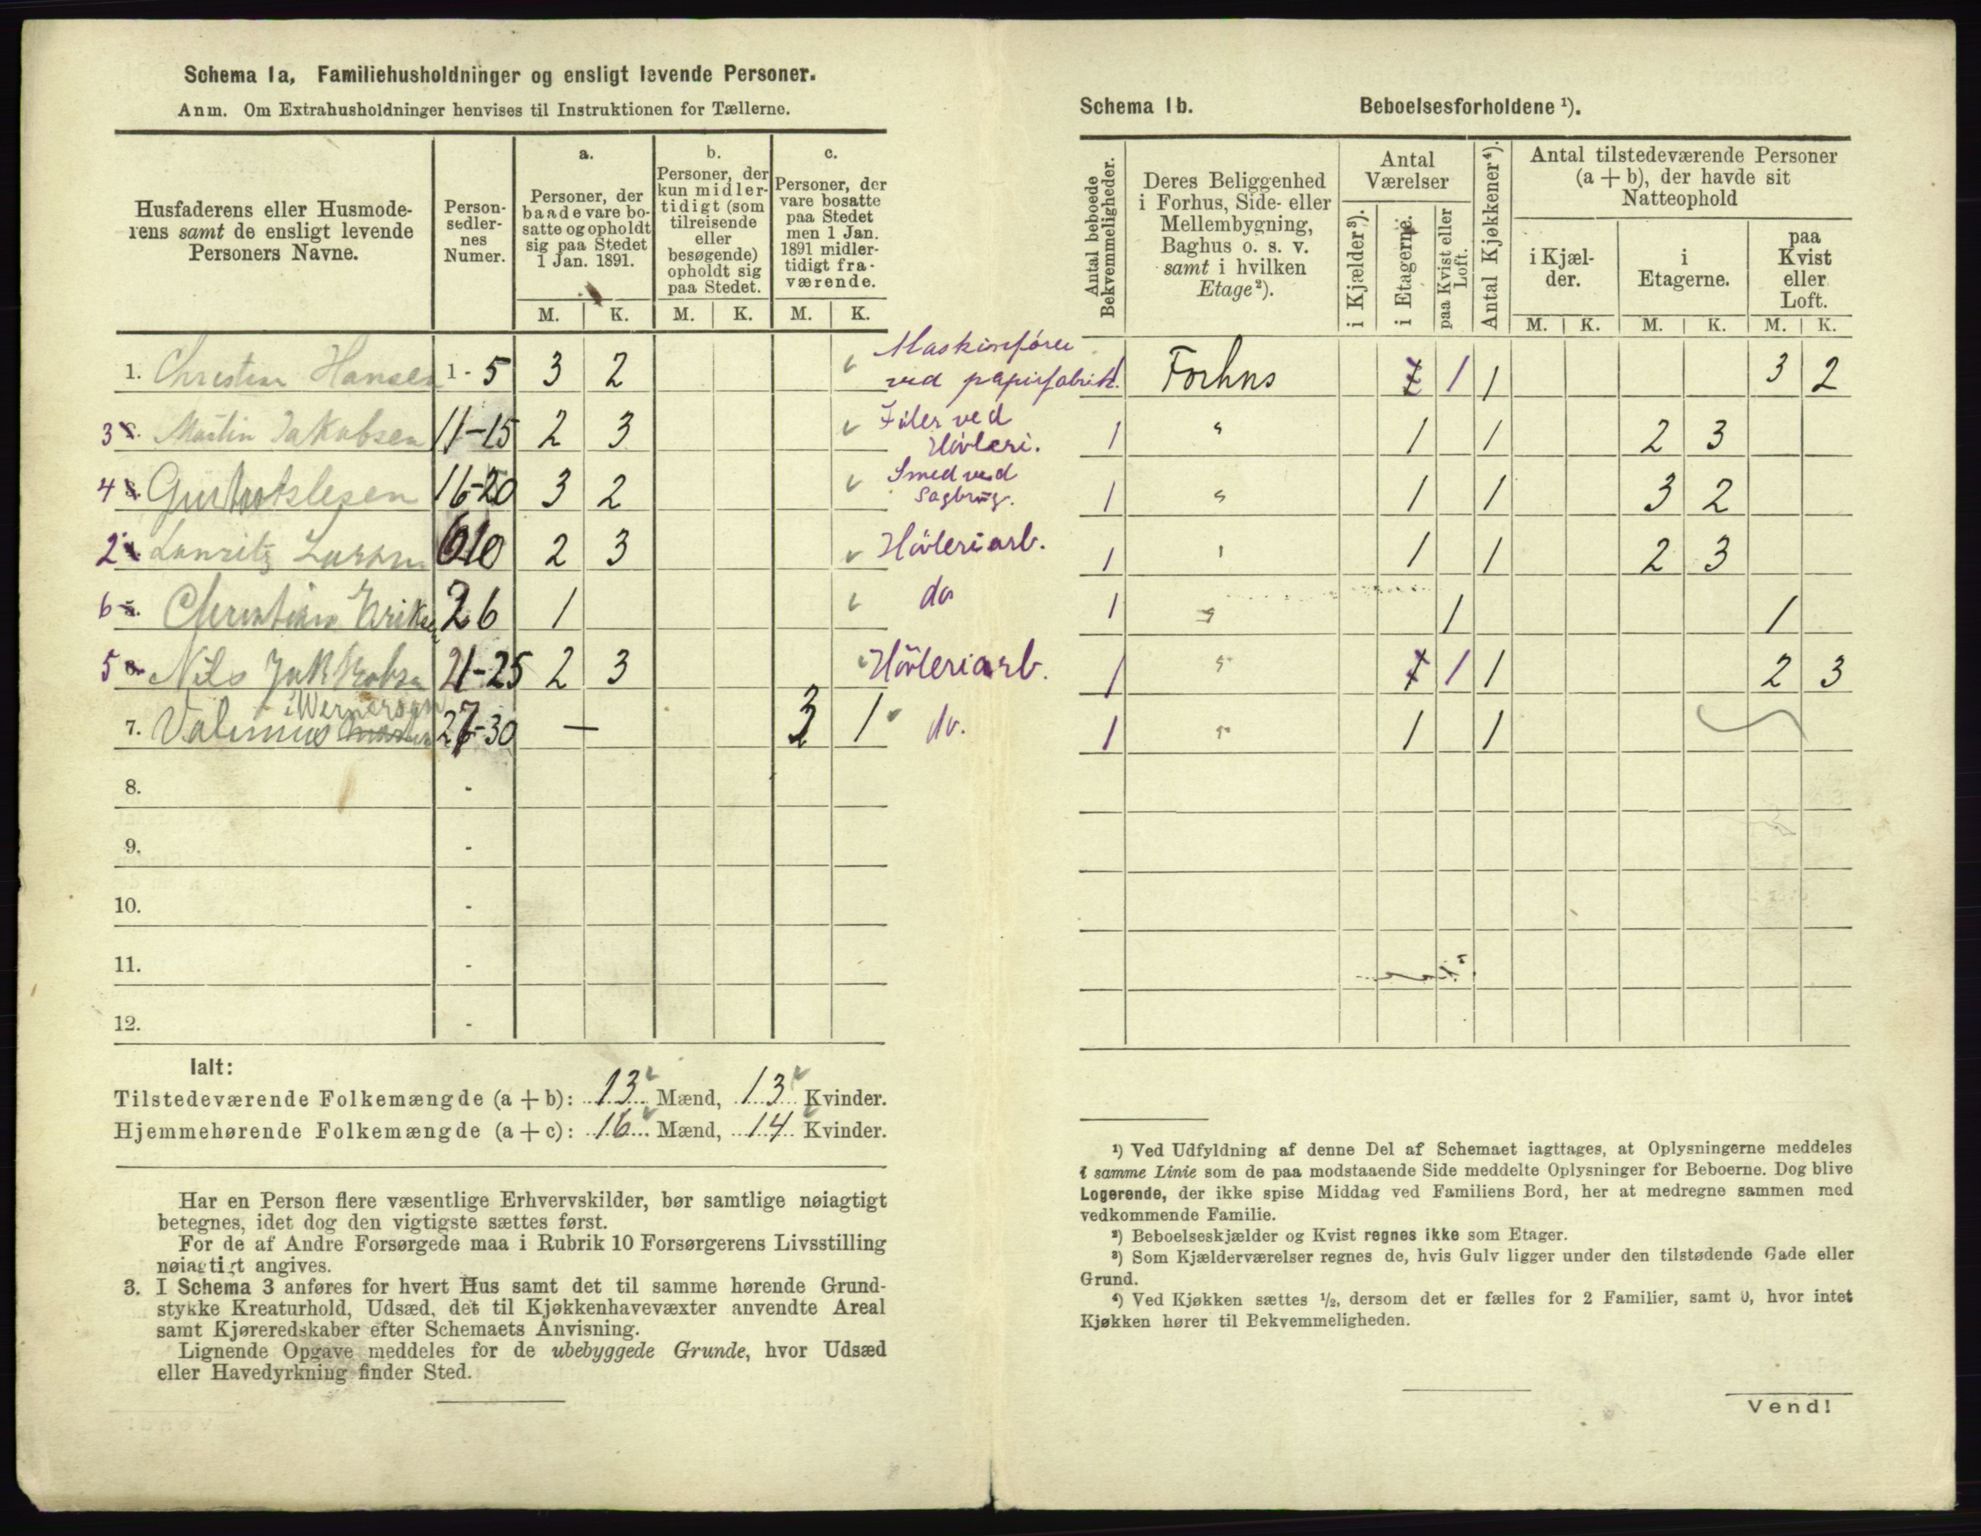 Schema 1a, Familiehusholdninger og ensligt levende Personer.
Anm. Om Extrahusholdninger henvises til Instruktionen for Tællerne.
Husfaderens eller Husmode-
rens samt de ensligt levende
Personers Navne.
Person-
sedler-
nes
Numer.
a.
Personer, der
baade vare bo-
satte og opholdt
sig paa Stedet
1 Jan. 1891.
b.
Personer, der
kun midler-
tidigt (som
tilreisende
eller
besøgende)
opholdt sig
paa Stedet.
c.
Personer, der
vare bosatte
paa Stedet
men 1 Jan.
1891 midler-
tidigt fra-
værende.
M. K. M. K. M. K.
1. Christian Hansen 1 - 5 3 2 Maskinfører
ved papirfabrik.
3 Martin Jakobsen 11-15 2 3 Filer ved
Høvleri.
4 16-20 3 2 Smed ved
Sagbrug.
2 Lauritz Larsen 6 10 2 3 Høvleriarb.
6 Christian 26 1 do
5 Nils 21-25 2 3 Høvleriarb.
Wernersen
7. 27-30 — 3 1 do.
8. -
9. -
10. -
11. -
12. -
Ialt:
Tilstedeværende Folkemængde (a + b): 13 Mænd, 13 Kvinder.
Hjemmehørende Folkemængde (a + c): 16 Mænd, 14 Kvinder.
Har en Person flere væsentlige Erhvervskilder, bør samtlige nøiagtigt
betegnes, idet dog den vigtigste sættes først.
For de af Andre Forsørgede maa i Rubrik 10 Forsørgerens Livsstilling
nøiagtigt angives.
3. I Schema 3 anføres for hvert Hus samt det til samme hørende Grund-
stykke Kreaturhold, Udsæd, det til Kjøkkenhavevæxter anvendte Areal
samt Kjøreredskaber efter Schemaets Anvisning.
Lignende Opgave meddeles for de ubebyggede Grunde, hvor Udsæd
eller Havedyrkning finder Sted.
Schema 1b. Beboelsesforholdene ¹).
Antal beboede
Bekvemmeligheder.
Deres Beliggenhed
i Forhus, Side- eller
Mellembygning,
Baghus o. s. v.
samt i hvilken
Etage²).
Antal
Værelser
i Kjælder³).
i Etagerne.
paa Kvist eller
Loft.
Antal Kjøkkener⁴).
Antal tilstedeværende Personer
(a + b), der havde sit
Natteophold
i Kjæl-
der.
i
Etagerne.
paa
Kvist
eller
Loft.
M. K. M. K. M. K.
1 Forhus 1 1 3 2
1 " 1 1 2 3
1 " 1 1 3 2
1 " 1 1 2 3
1 " 1 1
1 " 1 1 2 3
1 " 1 1
¹) Ved Udfyldning af denne Del af Schemaet iagttages, at Oplysningerne meddeles
i samme Linie som de paa modstaaende Side meddelte Oplysninger for Beboerne. Dog blive
Logerende, der ikke spise Middag ved Familiens Bord, her at medregne sammen med
vedkommende Familie.
²) Beboelseskjælder og Kvist regnes ikke som Etager.
³) Som Kjælderværelser regnes de, hvis Gulv ligger under den tilstødende Gade eller
Grund.
⁴) Ved Kjøkken sættes ½, dersom det er fælles for 2 Familier, samt 0, hvor intet
Kjøkken hører til Bekvemmeligheden.
Vend!